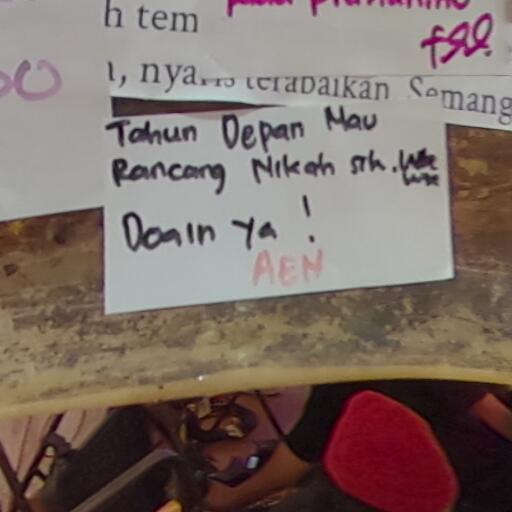 h tem
fsd!
nya...is terabaikan Semang
Tahun Depan Mau
Rancang Nikah sth. wk wk
Doain Ya !
AEN